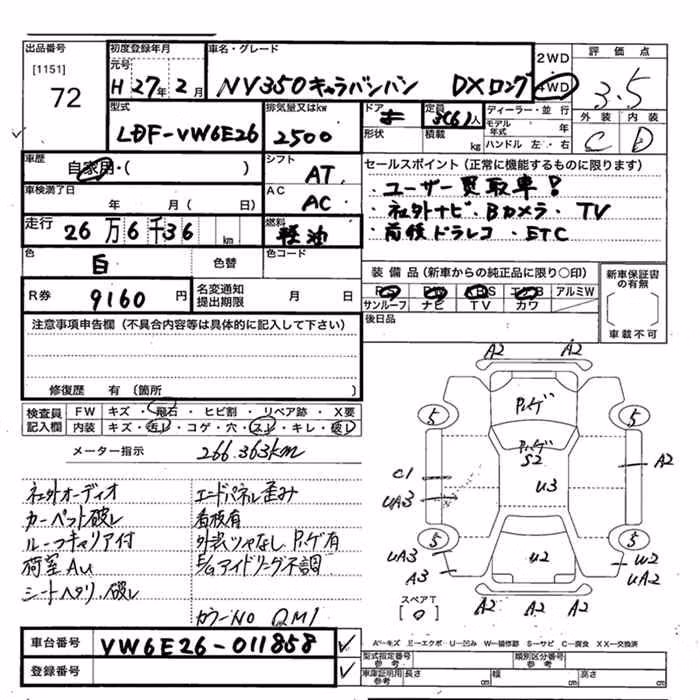 出品番号 初度登録年月 車名・グレード 2WD 評価点
[1151] 元号 4WD 3.5
72 H 27年 2月 NV350キャラバンバン DXロング 外装 内装
型式 排気量又はkw ドア 定員 人 ディーラー・並行 C D
LDF-VW6E26 2500 形状 積載 kg モデル年式 年
ハンドル 左・右
車歴 シフト セールスポイント(正常に機能するものに限ります)
自家用・( ) AT ・ユーザー買取車!
車検満了日 AC ・社外ナビ・Bカメラ・TV
年 月( 日) AC ・前後ドラレコ・ETC
走行 26万6千36 km 燃料 軽油
色 白 色替 色コード
装備品(新車からの純正品に限り○印) 新車保証書の有無
R券 9160 円 名変通知提出期限 月 日
サンルーフ ナビ TV カワ アルミW
注意事項申告欄(不具合内容等は具体的に記入して下さい) 後日品 車載不可
修復歴 有(箇所 )
検査員記入欄 FW キズ・飛石・ヒビ割・リペア跡・X要
内装 キズ・汚レ・コゲ・穴・スレ・キレ・破レ
メーター指示 266.363km
社外オーディオ エードパネル歪み
カーペット破レ 看板有
ルーフキャリア付 外装ツヤなし P.ハゲ有
荷室AU
シートヘタリ・破レ
カラーNO QM1
A2 A2
5 P.ハゲ 5
P.ハゲ
S2
C1 A2
UA3 U3
5 5
UA3 U2 W2
A3 UA2
スペアT
[0] A2 A2 A2
車台番号 VW6E26-011858 ✓
登録番号 ✓
A-キズ E-エクボ U-凹み W-補修跡 S-サビ C-腐食 XX-交換済
型式指定番号参考 類別区分番号参考
車庫証明用参考 長さ cm 幅 cm 高さ cm